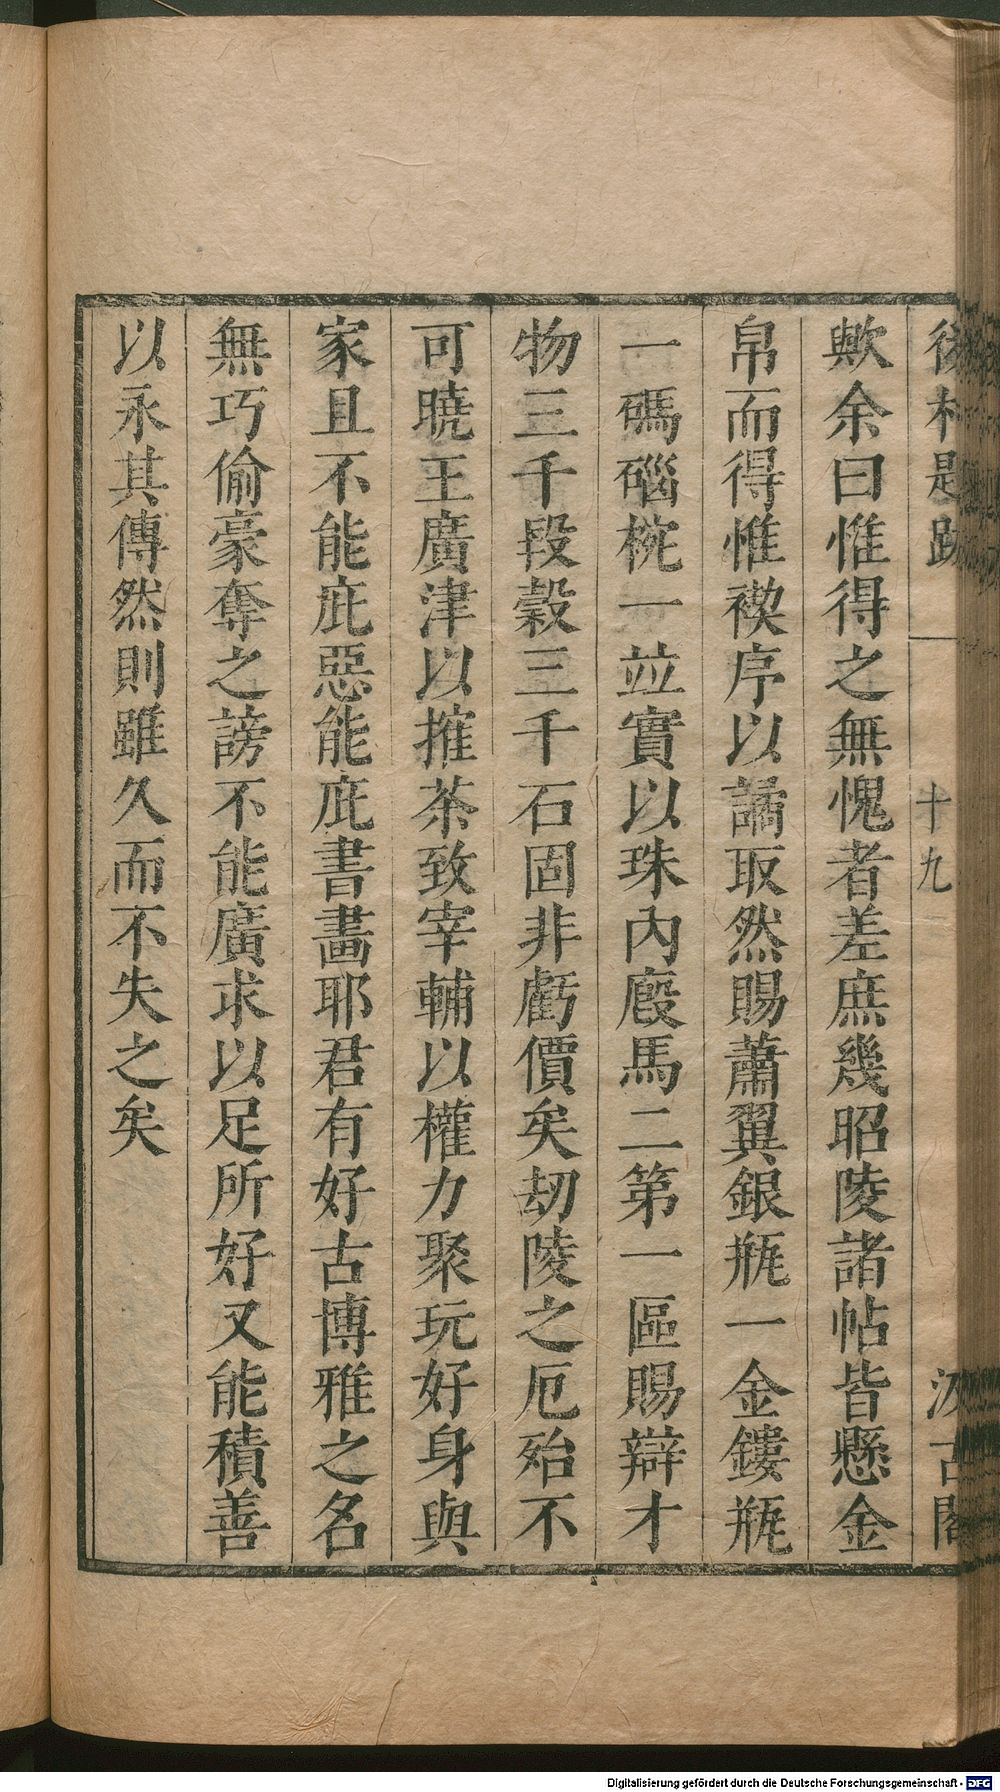 後村題跋 十九 汲古閣
歟余曰惟得之無愧者差庶幾昭陵諸帖皆懸金
帛而得惟禊序以譎取然賜蕭翼銀瓶一金鏤瓶
一碼碯椀一並實以珠內廐馬二第一區賜辯才
物三千段穀三千石固非虧價矣刼陵之厄殆不
可曉王廣津以搉茶致宰輔以權力聚玩好身與
家且不能庇惡能庇書畵耶君有好古博雅之名
無巧偷豪奪之謗不能廣求以足所好又能積善
以永其傳然則雖久而不失之矣
Digitalisierung gefördert durch die Deutsche Forschungsgemeinschaft - DFG